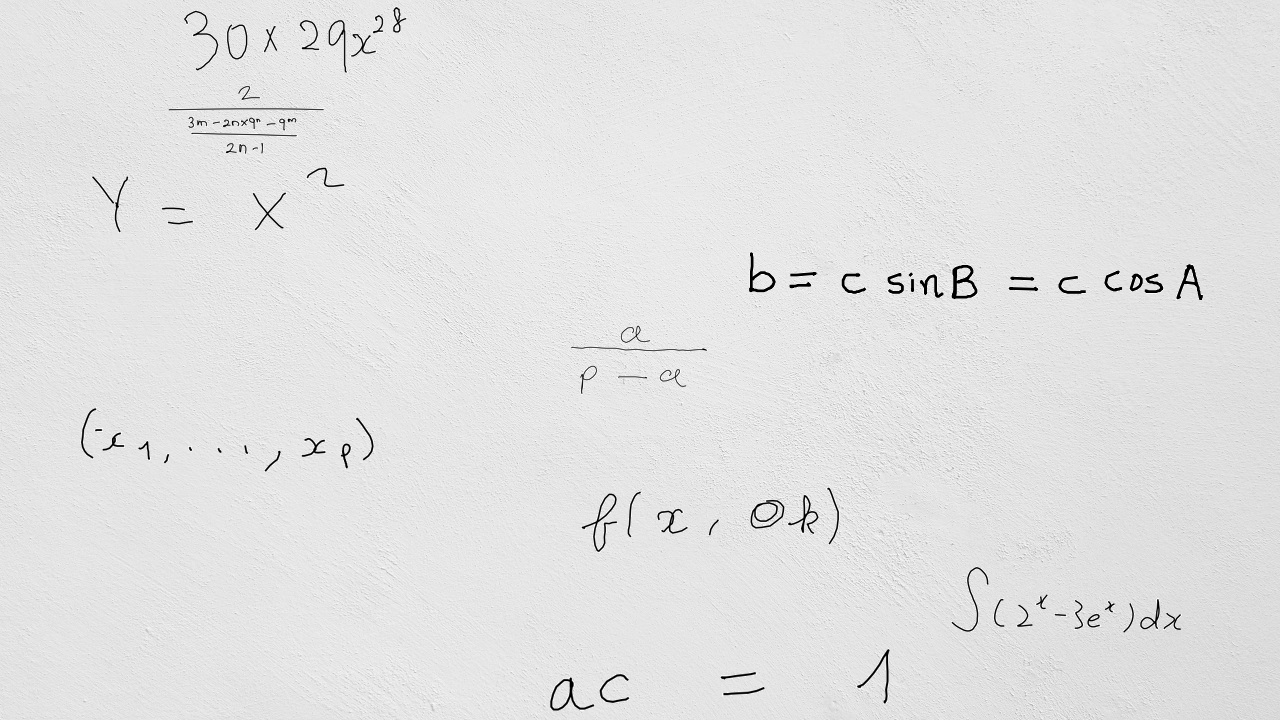 30 × 29x²⁸
2
3m − 2n×9ⁿ − 9ᵐ
2n − 1
Y = X²
b = c sinB = c cosA
a
p − a
(x₁, ..., xₚ)
f(x, Ok)
∫(2ˣ − 3eˣ)dx
ac = 1